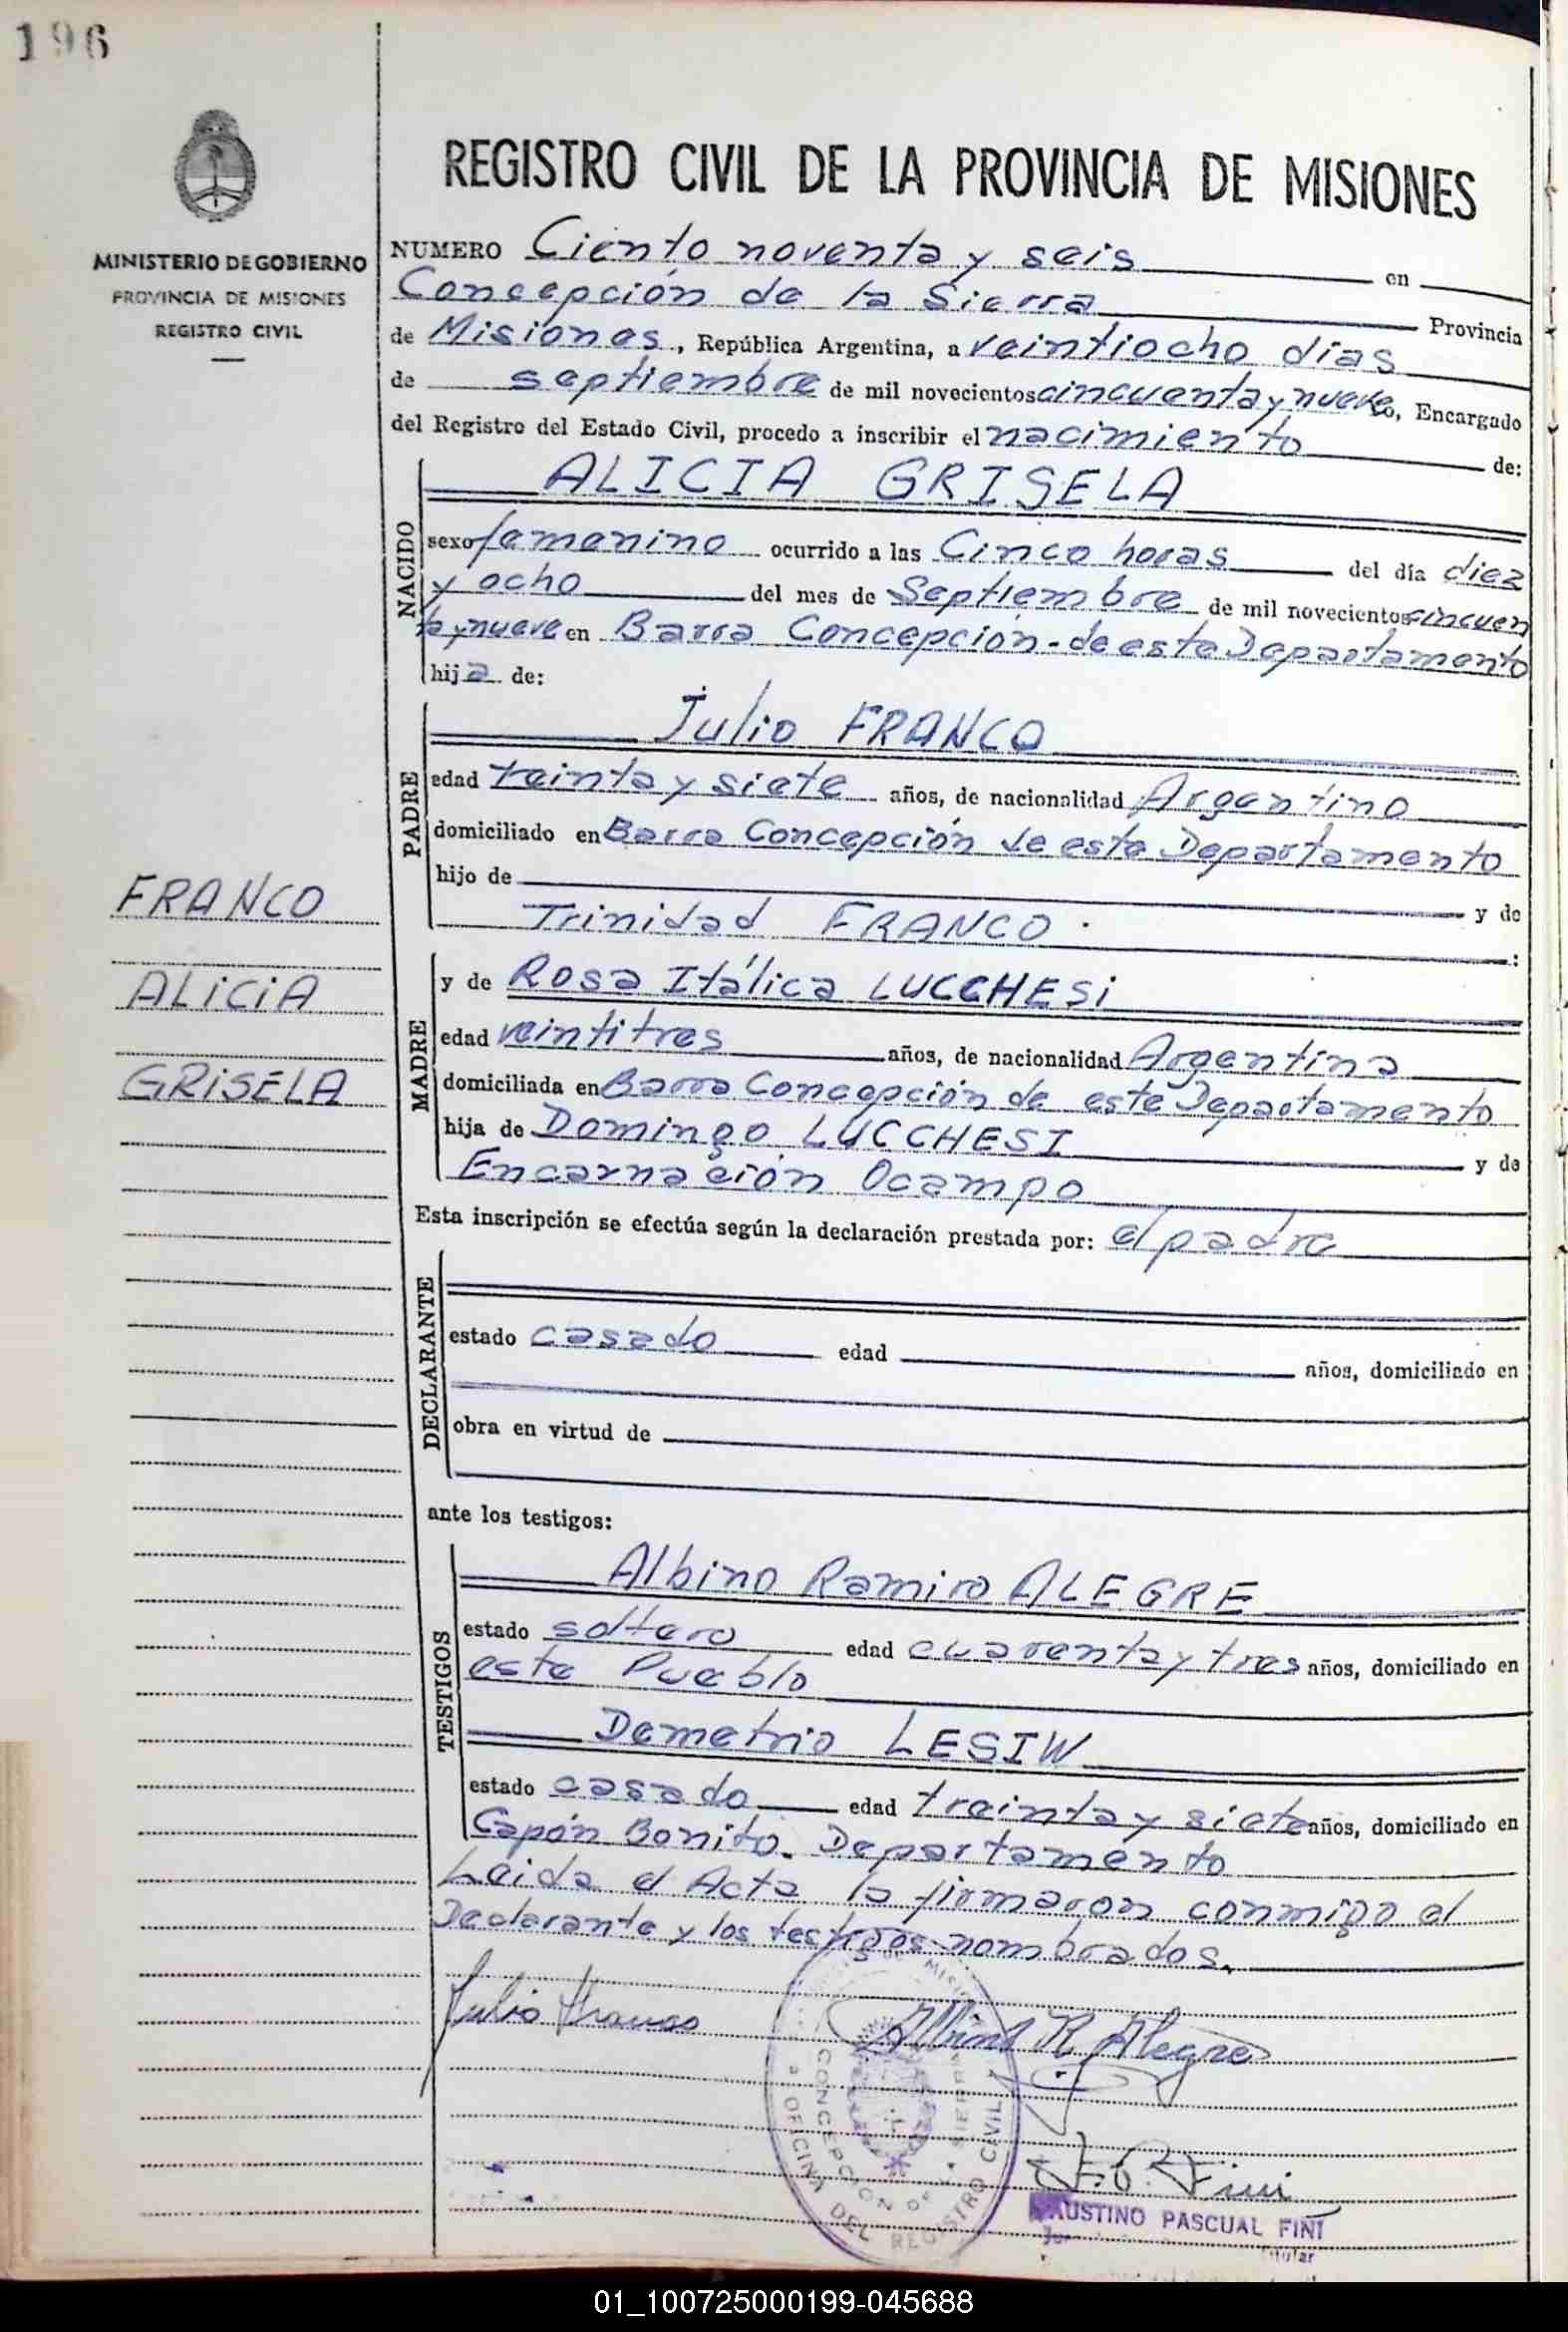 196
MINISTERIO DE GOBIERNO
PROVINCIA DE MISIONES
REGISTRO CIVIL
REGISTRO CIVIL DE LA PROVINCIA DE MISIONES
NUMERO Ciento noventa y seis en
Concepción de la Sierra Provincia
de Misiones, República Argentina, a veintiocho dias
de septiembre de mil novecientos cincuenta y nueve, Encargado
del Registro del Estado Civil, procedo a inscribir el nacimiento de:
NACIDO
ALICIA GRISELA
sexo femenino ocurrido a las Cinco horas del día diez
y ocho del mes de Septiembre de mil novecientos cincuen
ta y nueve en Barra Concepción - de este Departamento
hija de:
PADRE
Julio FRANCO
edad treinta y siete años, de nacionalidad Argentino
domiciliado en Barra Concepción de este Departamento
hijo de y de
Trinidad FRANCO.
FRANCO
ALICIA
GRISELA
MADRE
y de Rosa Itálica LUCCHESI
edad veintitres años, de nacionalidad Argentina
domiciliada en Barra Concepción de este Departamento
hija de Domingo LUCCHESI y de
Encarnación Ocampo
Esta inscripción se efectúa según la declaración prestada por: el padre
DECLARANTE
estado casado edad años, domiciliado en
obra en virtud de
ante los testigos:
TESTIGOS
Albino Ramiro ALEGRE
estado soltero edad cuarenta y tres años, domiciliado en
este Pueblo
Demetrio LESIW
estado casado edad treinta y siete años, domiciliado en
Capón Bonito. Departamento
Leida el Acta la firmaron conmigo el
Declarante y los testigos nombrados.
Julio Franco
Albino R Alegre
OFICINA DEL REGISTRO CIVIL
CONCEPCION DE LA SIERRA
F. P. Fini
FAUSTINO PASCUAL FINI
Titular
01_100725000199-045688